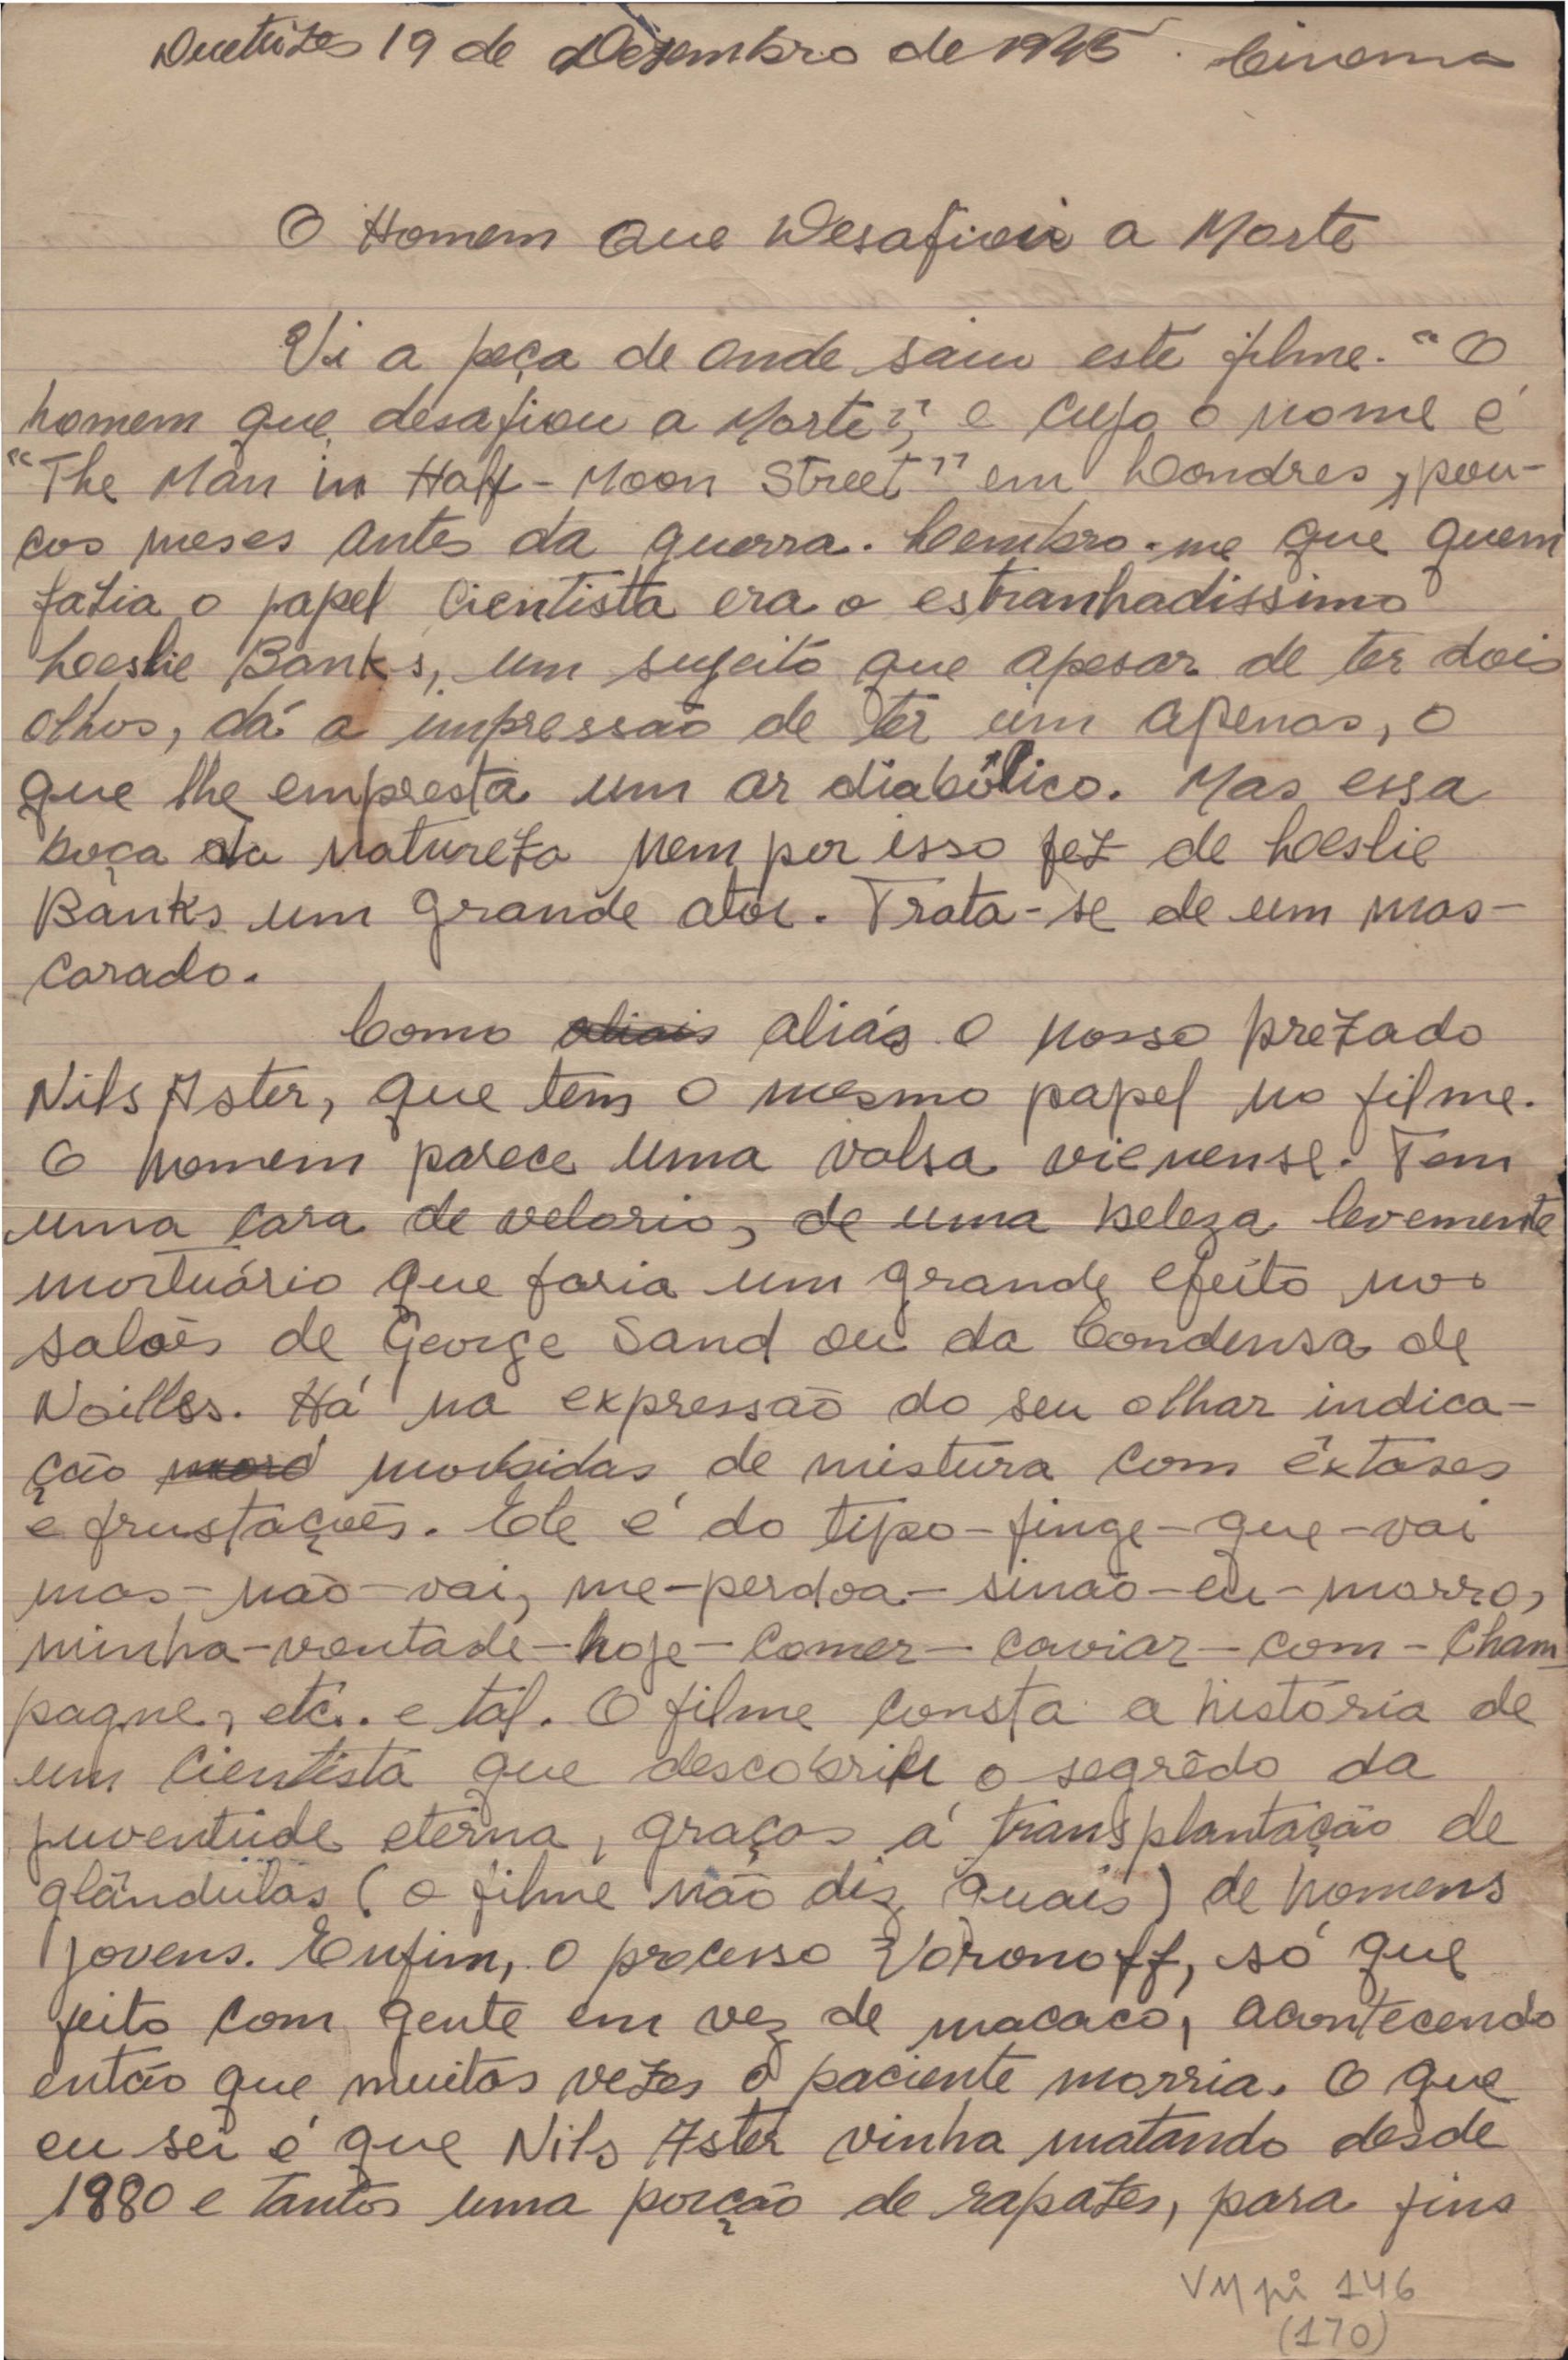 Diretrizes 19 de Dezembro de 1945. Cinema
O Homem Que Desafiou a Morte
Vi a peça de onde saiu este filme. "O
homem que desafiou a Morte", e cujo o nome é
"The Man in Half-Moon Street" em Londres, pou-
cos meses antes da guerra. Lembro-me que quem
fazia o papel cientista era o estranhadissimo
Leslie Banks, um sujeito que apesar de ter dois
olhos, dá a impressão de ter um apenas, o
que lhe empresta um ar diabólico. Mas essa
boça da natureza nem por isso fez de Leslie
Banks um grande ator. Trata-se de um mas-
carado.
Como aliais aliás o nosso prezado
Nils Aster, que tem o mesmo papel no filme.
O homem parece uma valsa vienense. Tem
uma cara de velorio, de uma beleza levemente
mortuário que faria um grande efeito nos
salões de George Sand ou da Condensa de
Noilles. Há na expressão do seu olhar indica-
ção morbidas de mistura com êxtases
e frustações. Ele é do tipo-finge-que-vai
mas-não-vai, me-perdoa-sinão-eu-morro,
minha-vontade-hoje-comer-caviar-com-Cham-
pagne, etc.. e tal. O filme consta a história de
um cientista que descobriu o segrêdo da
juventude eterna, graças á transplantação de
glândulas (o filme não diz quais) de homens
jovens. Enfim, o processo Voronoff, só que
feito com gente em vez de macaco, acontecendo
então que muitas vezes o paciente morria. O que
eu sei é que Nils Aster vinha matando desde
1880 e tantos uma porção de rapazes, para fins
VM pi 146
(170)